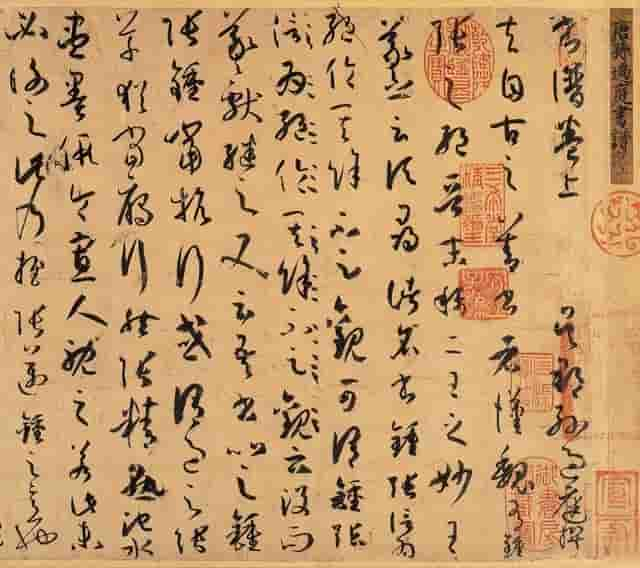 唐孫過庭書譜
書譜卷上 吳郡孫過庭撰
夫自古之善書者漢魏有鍾
張之絕晉末稱二王之妙王
羲之云頃尋諸名書鍾張信為
絕倫其餘不足觀可謂鍾張
信為絕倫其餘不足觀云沒而
羲獻繼之又云吾書比之鍾
張鍾當抗行或謂過之張
草猶當鴈行然張精熟池水
盡墨假令寡人耽之若此未
必謝之此乃推張邁鍾之意也